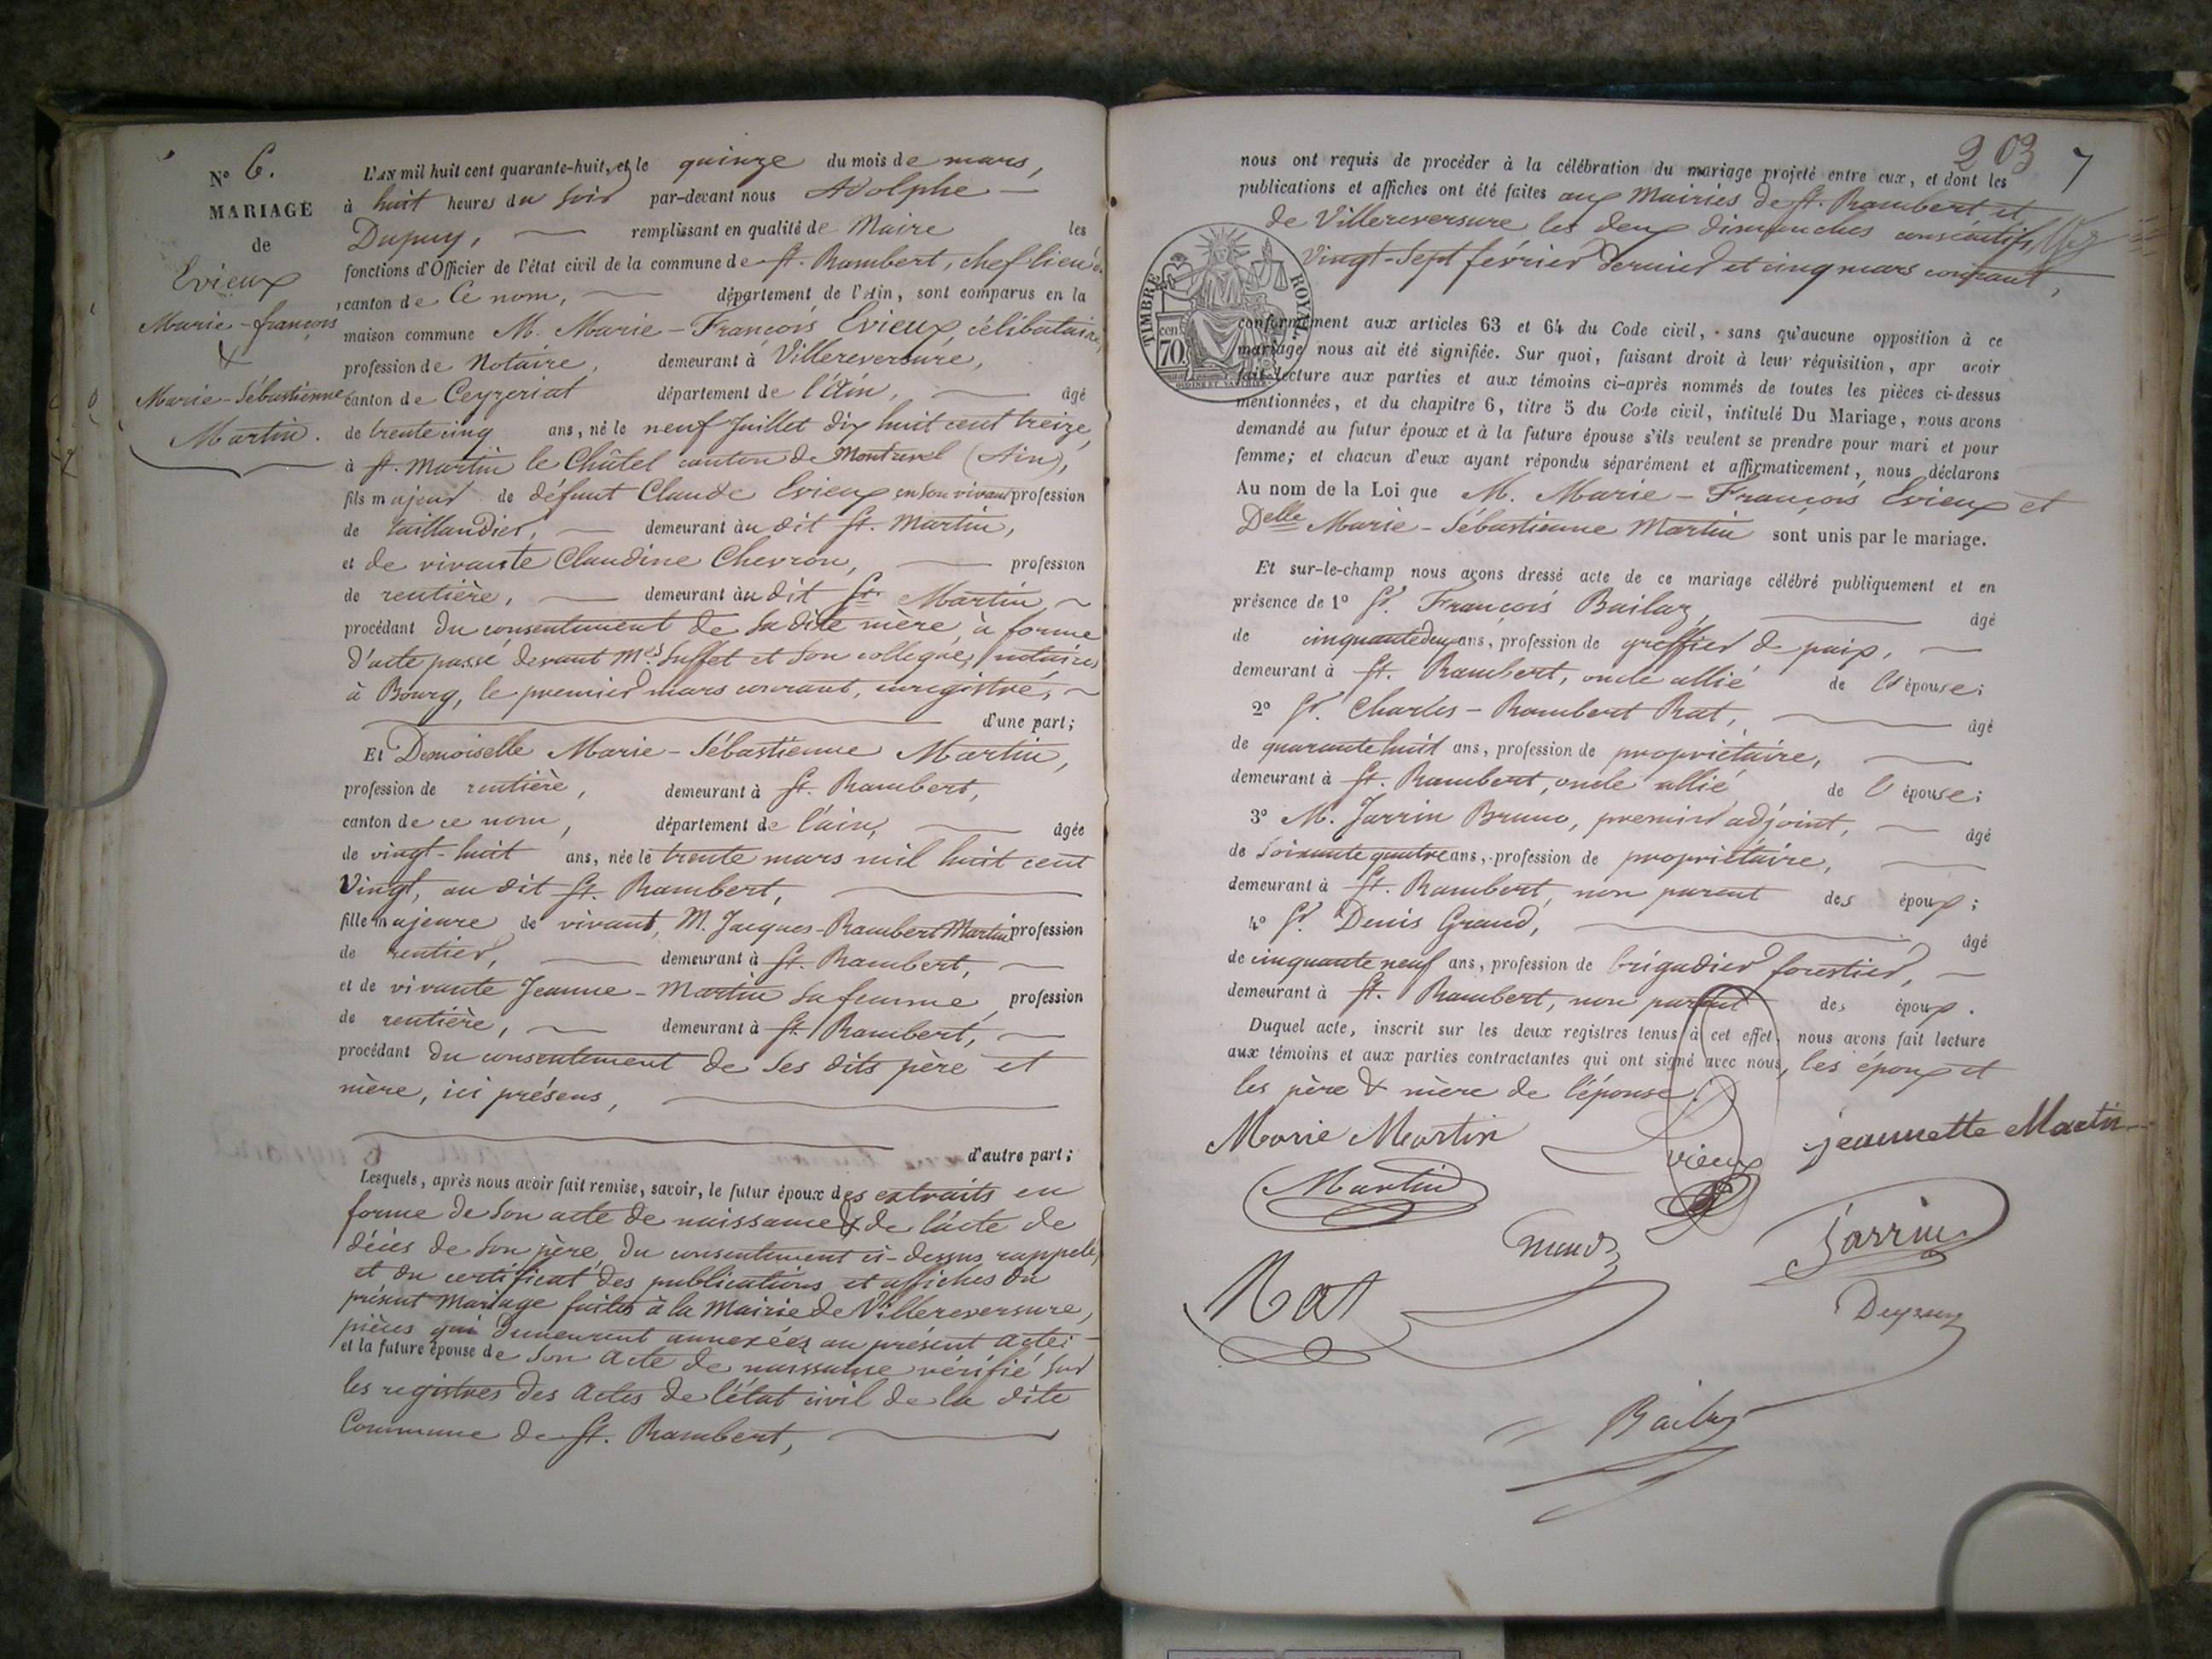 N° 6.
MARIAGE
de
Evieux
Marie-françois
&
Marie-Sébastienne
Martin.
L'AN mil huit cent quarante-huit, et le quinze du mois de mars,
à huit heures du soir par-devant nous Adolphe
Dupuy, remplissant en qualité de Maire les
fonctions d'Officier de l'état civil de la commune de St. Rambert, chef lieu de
canton de Ce nom, département de l'Ain, sont comparus en la
maison commune M. Marie-François Evieux, célibataire,
profession de Notaire, demeurant à Villereversure,
canton de Ceyzeriat département de l'Ain, âgé
de trente cinq ans, né le neuf Juillet dix huit cent treize,
à St. Martin le Châtel canton de Montrevel (Ain),
fils majeur de défunt Claude Evieux en son vivant profession
de taillandier, demeurant au dit St. Martin,
et de vivante Claudine Chevron, profession
de rentière, demeurant au dit St. Martin
procédant du consentement de sa dite mère, à forme
d'acte passé devant Mes. Suffet et son collegue, notaires
à Bourg, le premier mars courant, enregistré,
d'une part;
Et Demoiselle Marie-Sébastienne Martin,
profession de rentière, demeurant à St. Rambert,
canton de ce nom, département de l'ain, âgée
de vingt-huit ans, née le trente mars mil huit cent
Vingt, au dit St. Rambert,
fille majeure de vivant, M. Jacques-Rambert Martin profession
de rentier, demeurant à St. Rambert,
et de vivante Jeanne-Martin sa femme, profession
de rentière, demeurant à St. Rambert,
procédant du consentement de ses dits père et
mère, ici présens,
d'autre part;
Lesquels, après nous avoir fait remise, savoir, le futur époux des extraits en
forme de son acte de naissance & de l'acte de
décès de son père, du consentement ci-dessus rappelé,
et du certificat des publications et affiches du
présent Mariage faites à la Mairie de Villereversure,
pièces qui demeurent annexées au présent acte;
et la future épouse de son acte de naissance vérifié sur
les registres des Actes de l'état civil de la dite
Commune de St. Rambert,
203
7
nous ont requis de procéder à la célébration du mariage projeté entre eux, et dont les
publications et affiches ont été faites aux Mairies de St. Rambert et
de Villereversure les deux dimanches consécutifs
Vingt-Sept février dernier et cinq mars courant,
TIMBRE ROYAL.
cen
70
conformément aux articles 63 et 64 du Code civil, sans qu'aucune opposition à ce
mariage nous ait été signifiée. Sur quoi, faisant droit à leur réquisition, apr avoir
fait lecture aux parties et aux témoins ci-après nommés de toutes les pièces ci-dessus
mentionnées, et du chapitre 6, titre 5 du Code civil, intitulé Du Mariage, nous avons
demandé au futur époux et à la future épouse s'ils veulent se prendre pour mari et pour
femme; et chacun d'eux ayant répondu séparément et affirmativement, nous déclarons
Au nom de la Loi que M. Marie-François Evieux et
Delle Marie-Sébastienne Martin sont unis par le mariage.
Et sur-le-champ nous avons dressé acte de ce mariage célébré publiquement et en
présence de 1° Sr. François Bailaz, âgé
de cinquante deux ans, profession de greffier de paix,
demeurant à St. Rambert, oncle allié de l'épouse;
2° Sr. Charles-Rambert Rat, âgé
de quarante huit ans, profession de propriétaire,
demeurant à St. Rambert, oncle allié de l'épouse;
3° M. Jarrin Bruno, premier adjoint, âgé
de soixante quatre ans, profession de propriétaire,
demeurant à St. Rambert, non parent des époux;
4° Sr. Denis Grand, âgé
de cinquante neuf ans, profession de brigadier forestier,
demeurant à St. Rambert, non parent des époux.
Duquel acte, inscrit sur les deux registres tenus à cet effet, nous avons fait lecture
aux témoins et aux parties contractantes qui ont signé avec nous, les époux et
les père & mère de l'épouse.
Marie Martin
Evieux
jeannette Martin
Martin
Jarrin
Rat
Dupuy
Bailaz